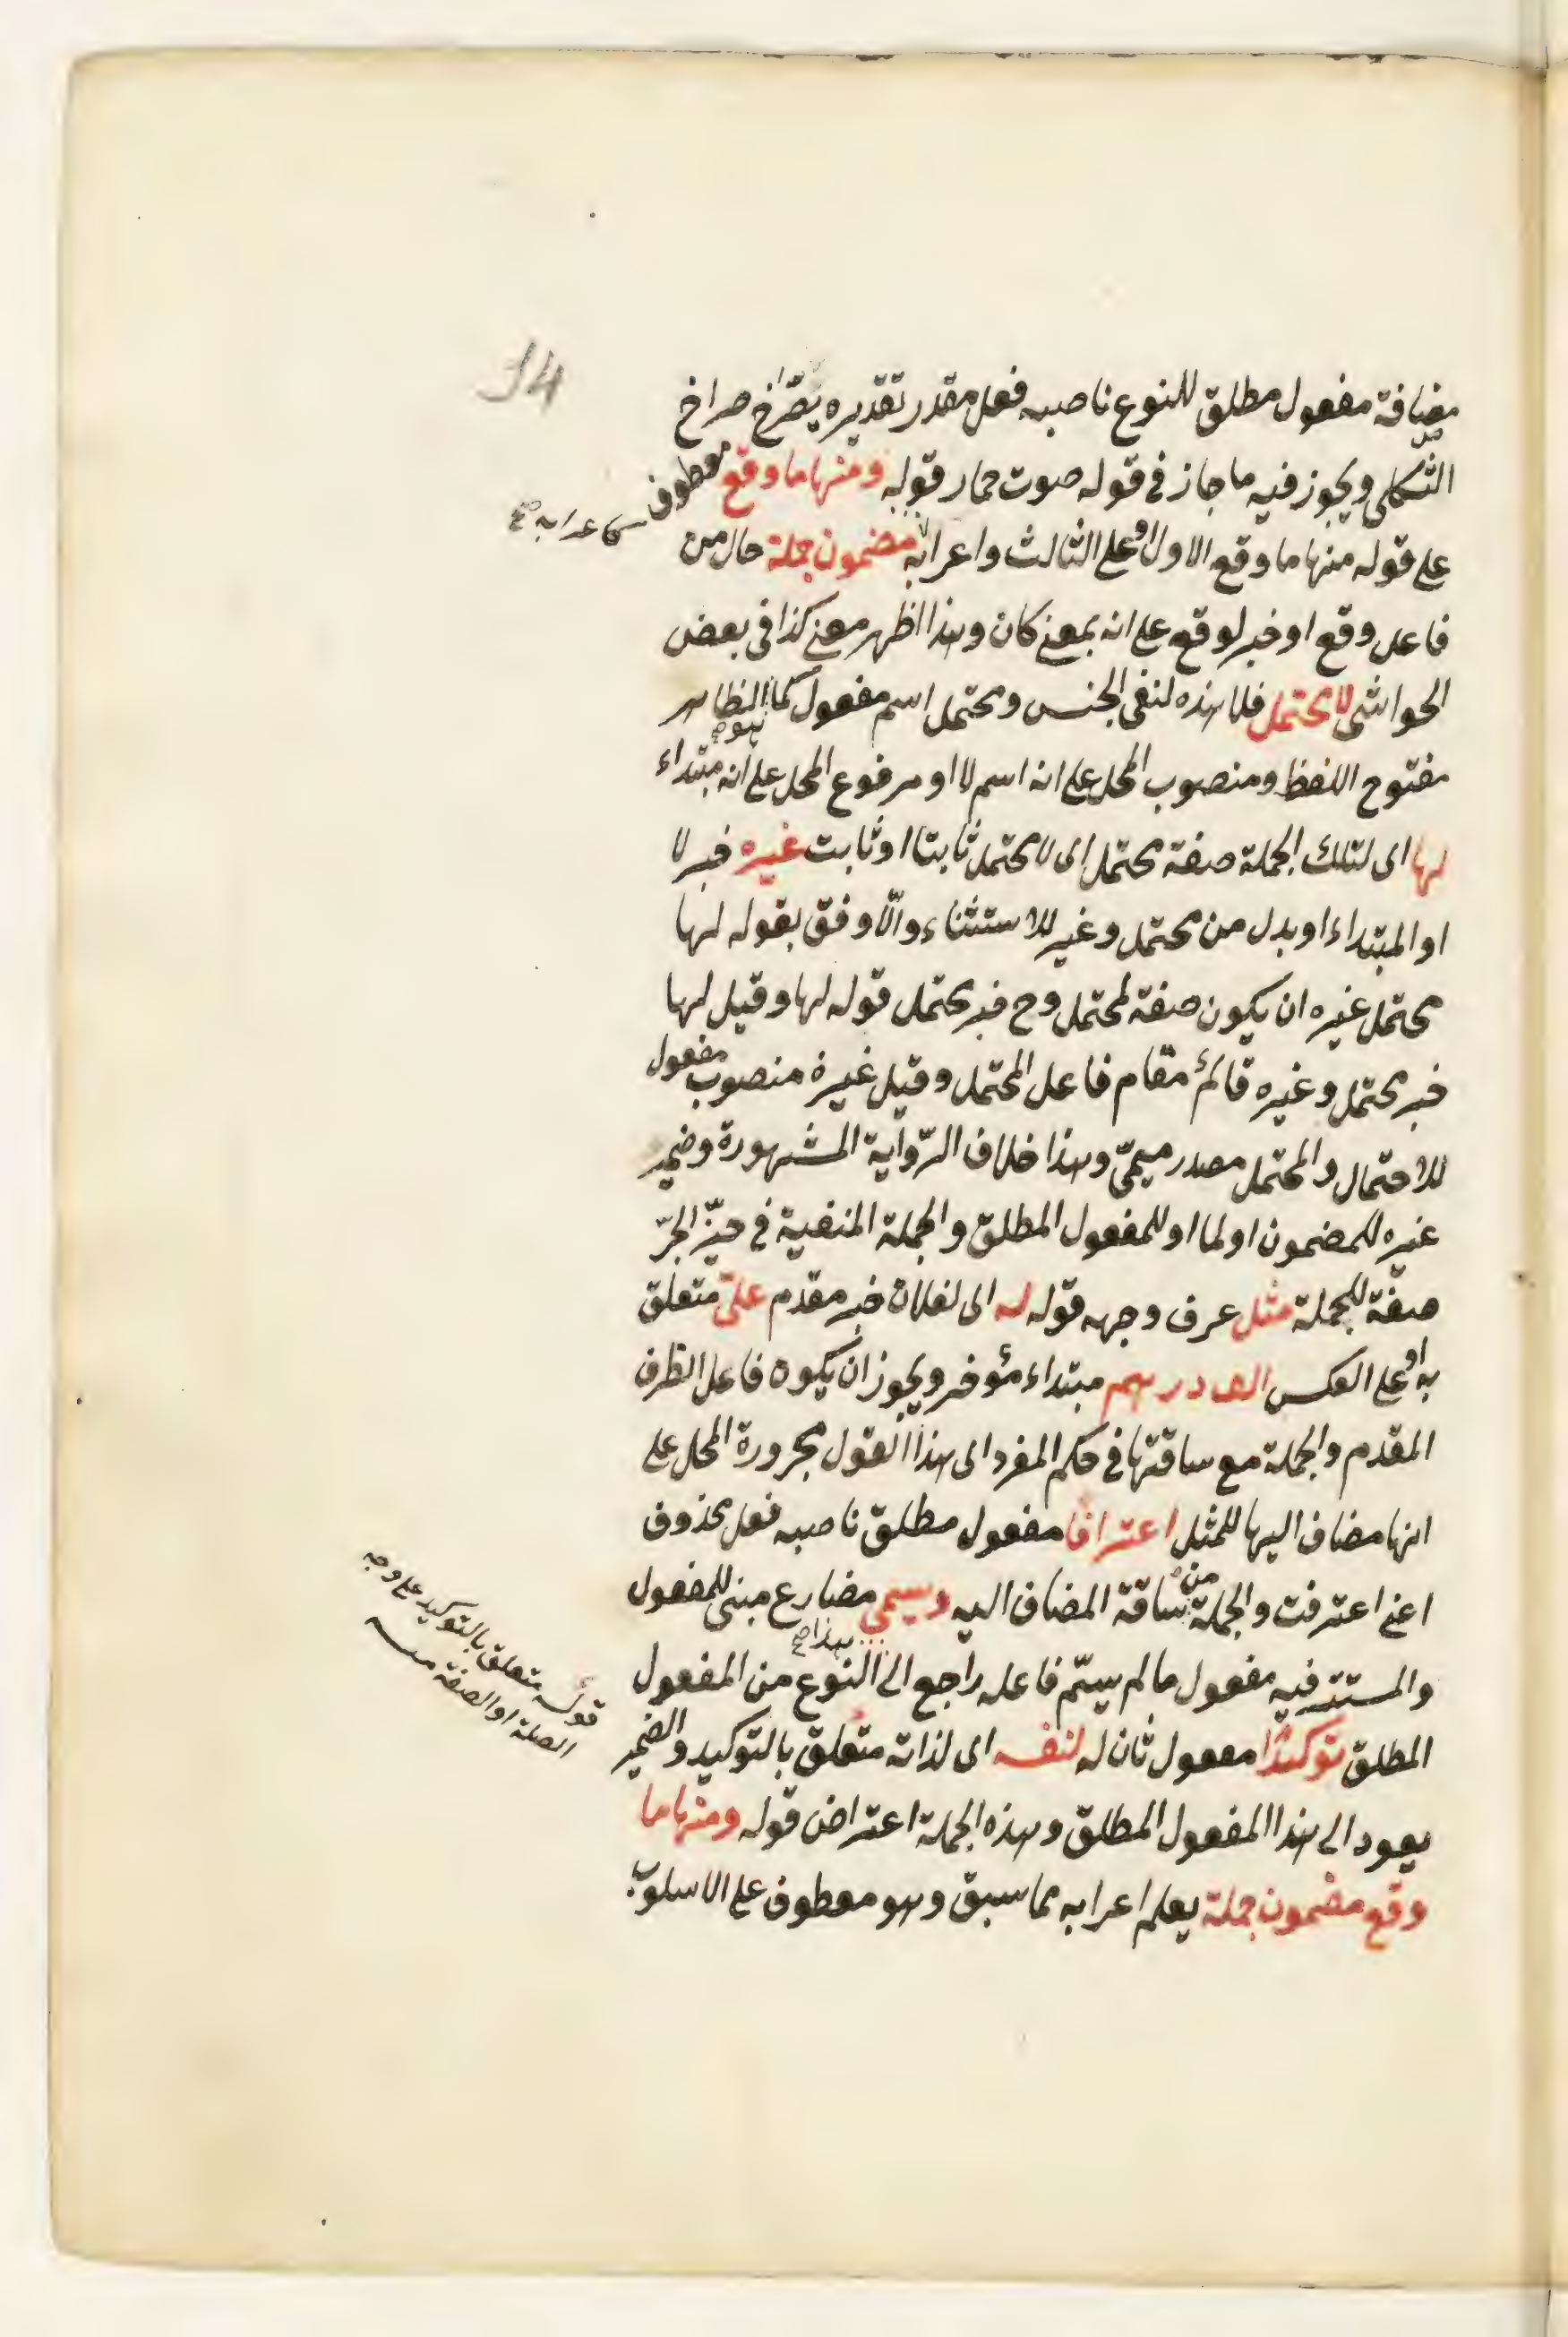 14
مضافة مفعول مطلق للنوع ناصبه فعل مقدر تقديره يصرخ صراخ
الثكلى ويجوز فيه ما جاز في قوله صوت حمار قوله ومنها ما وقع معطوف
على قوله منها ما وقع الاول او على الثالث واعرابه كاعرابه صح مضمون جملة حال من
فاعل وقع او خبر لوقع على انه بمعنى كان وهذا اظهر معنى كذا في بعض
الحواشى لا محتمل فلا هذه لنفى الجنس ومحتمل اسم مفعول كما هو الظاهر
مفتوح اللفظ ومنصوب المحل على انه اسم لا او مرفوع المحل على انه مبتداء
لها اى لتلك الجملة صفة محتمل اى لا محتمل ثابتا او ثابت غيره خبر لا
او المبتداء او بدل من محتمل وغير للاستثناء والاوفق بقوله لها
محتمل غيره ان يكون صفة لمحتمل وح خبر محتمل قوله لها وقيل لها
خبر محتمل وغيره قائم مقام فاعل المحتمل وقيل غيره منصوب مفعول
للاحتمال والمحتمل مصدر ميمىّ وهذا خلاف الرّواية المشهورة وضمير
غيره للمضمون او لما او للمفعول المطلق والجملة المنفية في حيّز الجرّ
صفة للجملة مثل عرف وجهه قوله له اى لفلان خبر مقدم علىّ متعلق
به او على العكس الف درهم مبتداء مؤخر ويجوز ان يكون فاعل الظرف
المقدم والجملة مع ساقتها في حكم المفرد اى هذا القول مجرورة المحل على
انها مضاف اليها للمثل اعترافا مفعول مطلق ناصبه فعل محذوف
اعنى اعترفت والجملة من ساقة المضاف اليه ويسمى مضارع مبنى للمفعول
والمستتر فيه مفعول ما لم يسمّ فاعله راجع الى هذا صح النوع من المفعول
المطلق توكيدا مفعول ثان له لنفسه اى لذاته متعلق بالتوكيد والضمير
يعود الى هذا المفعول المطلق وهذه الجملة اعتراض قوله ومنها ما
وقع مضمون جملة يعلم اعرابه مما سبق وهو معطوف على الاسلوب
قوله متعلق بالتوكيد على وجه
الصلة او الصفة منه